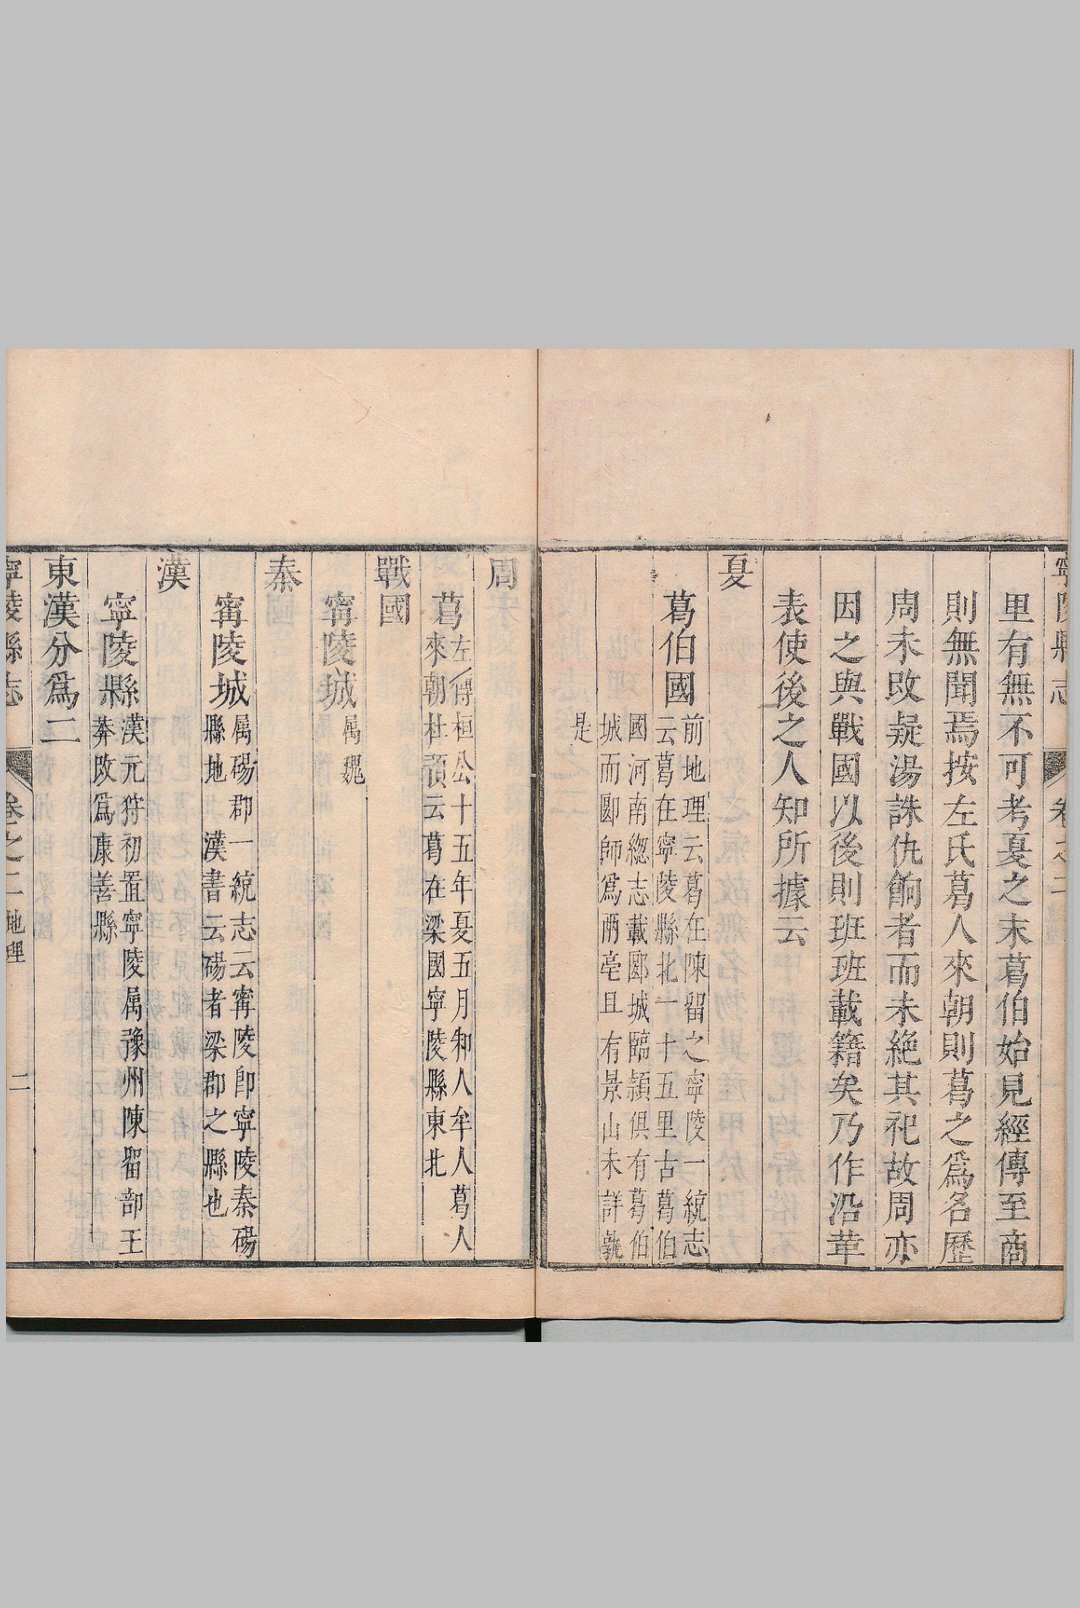 寧陵縣志 卷之二
里有無不可考夏之末葛伯始見經傳至商
則無聞焉按左氏葛人來朝則葛之爲名歷
周未改疑湯誅仇餉者而未絶其祀故周亦
因之與戰國以後則班班載籍矣乃作沿革
表使後之人知所據云
夏
葛伯國
前地理云葛在陳留之寧陵一統志
云葛在寧陵縣北一十五里古葛伯
國河南緫志載郾城臨頴俱有葛伯
城而郾師爲兩亳且有景山未詳孰
是
周
葛
左傳桓公十五年夏五月邾人牟人葛人
來朝杜預云葛在梁國寧陵縣東北
戰國
甯陵城
属魏
秦
甯陵城
属碭郡一統志云甯陵卽寧陵秦碭
縣地 漢書云碭者梁郡之縣也
漢
寧陵縣
漢元狩初置寧陵属豫州陳畱部王
莽改爲康善縣
東漢分爲二
寧陵縣志 卷之二 地理 二